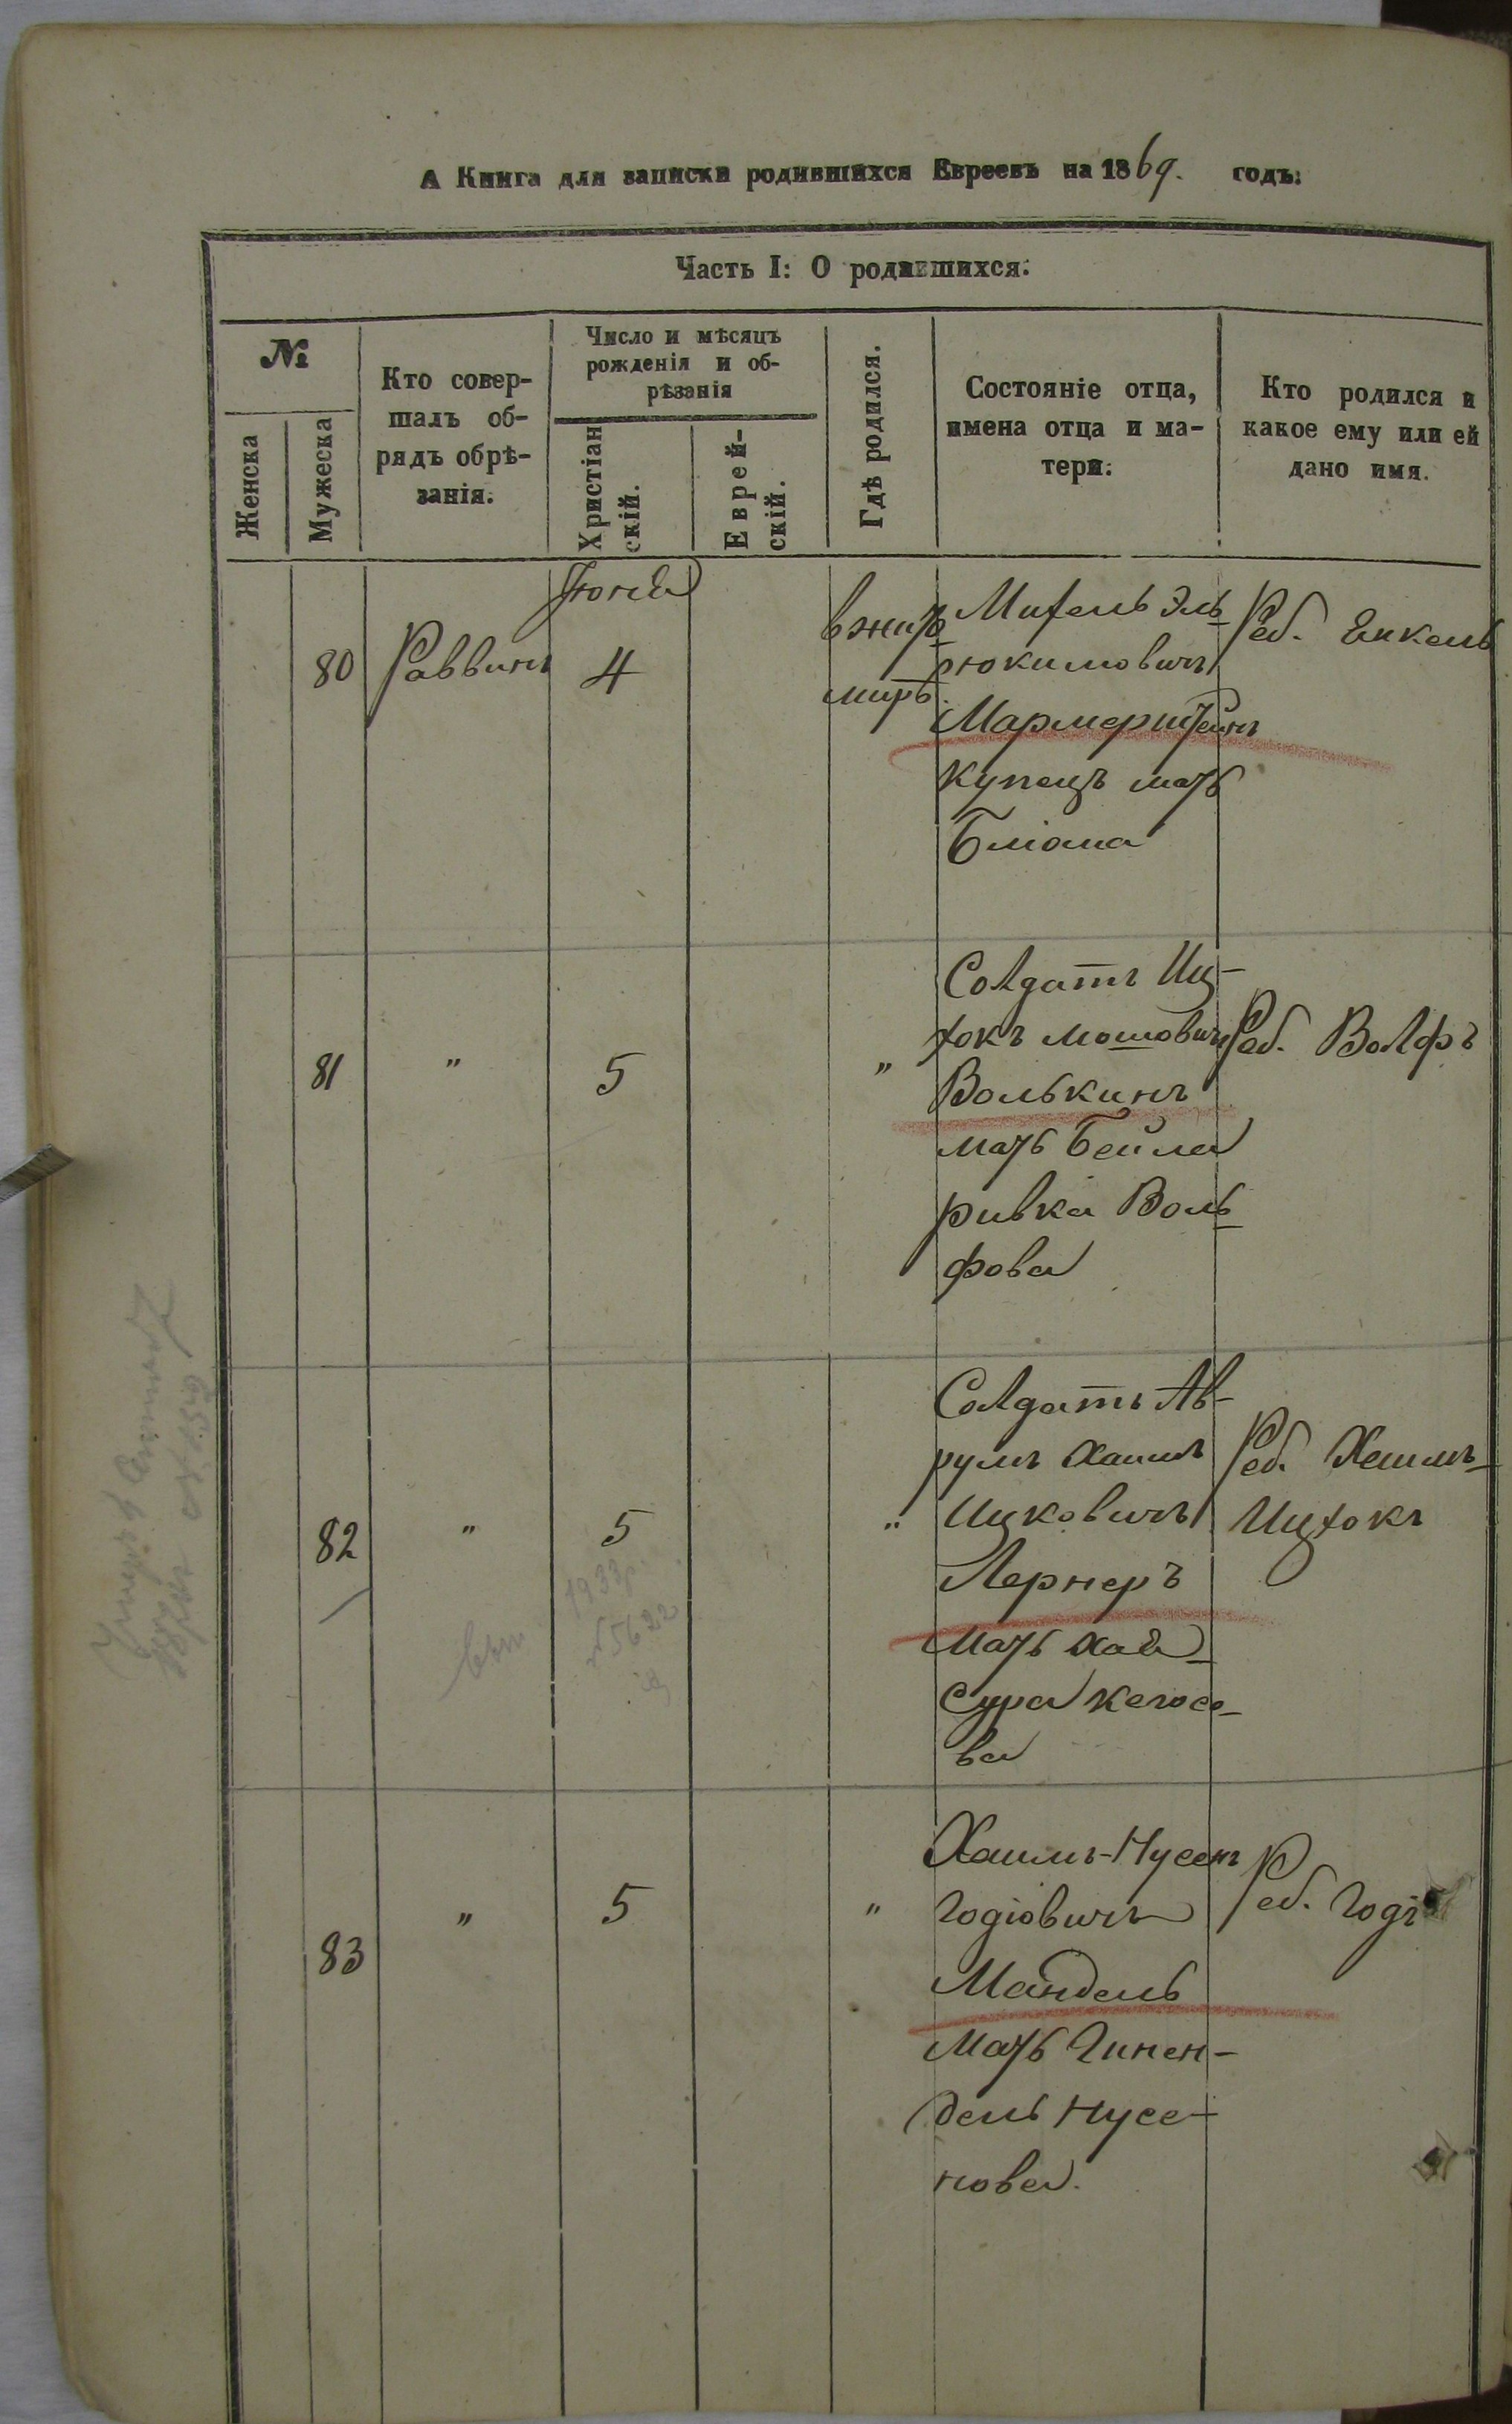 А Книга для записки родившихся Евреевъ на 1869. годъ.
Часть I: О родившихся.
№
Женска
Мужеска
Кто совер-
шалъ об-
рядъ обрѣ-
занія.
Число и мѣсяцъ
рожденія и об-
рѣзанія
Христіан
скій.
Еврей-
скій.
Гдѣ родился.
Состояніе отца,
имена отца и ма-
тери.
Кто родился и
какое ему или ей
дано имя.
Іюня
80
Раввинъ
4
вжит
миръ.
Михель Эль
рюкимовичъ
Мармерштейнъ
купецъ мать
Блюма
Реб. Енкель
81
"
5
"
Солдатъ Иц-
хокъ мошовичъ
Волькинъ
мать Бейла
ривка Воль
фова
Реб. Волфъ
82
"
5
"
Солдатъ Ав-
румъ Хаимъ
Ицковичъ
Лернеръ
Мать Хая
Сура
ва
Реб. Хаимъ
Ицхокъ
1933
83
"
5
"
Хаимъ-Нусенъ
Годіовичъ
Мандель
Мать Гинен-
дель Нусе-
нова.
Реб. Годі